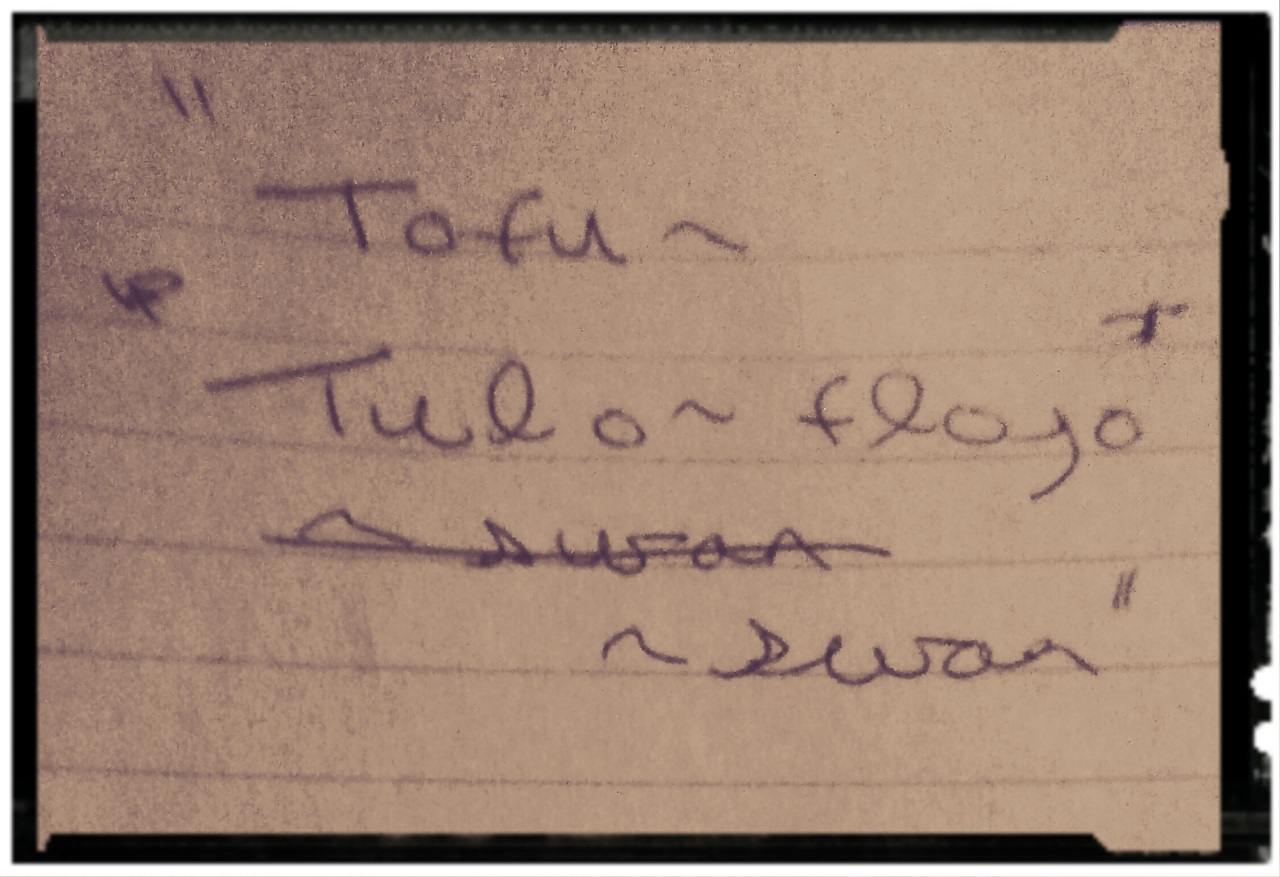 "
Tofu ~
Tulo ~ floyo
~ swan
~ swan "